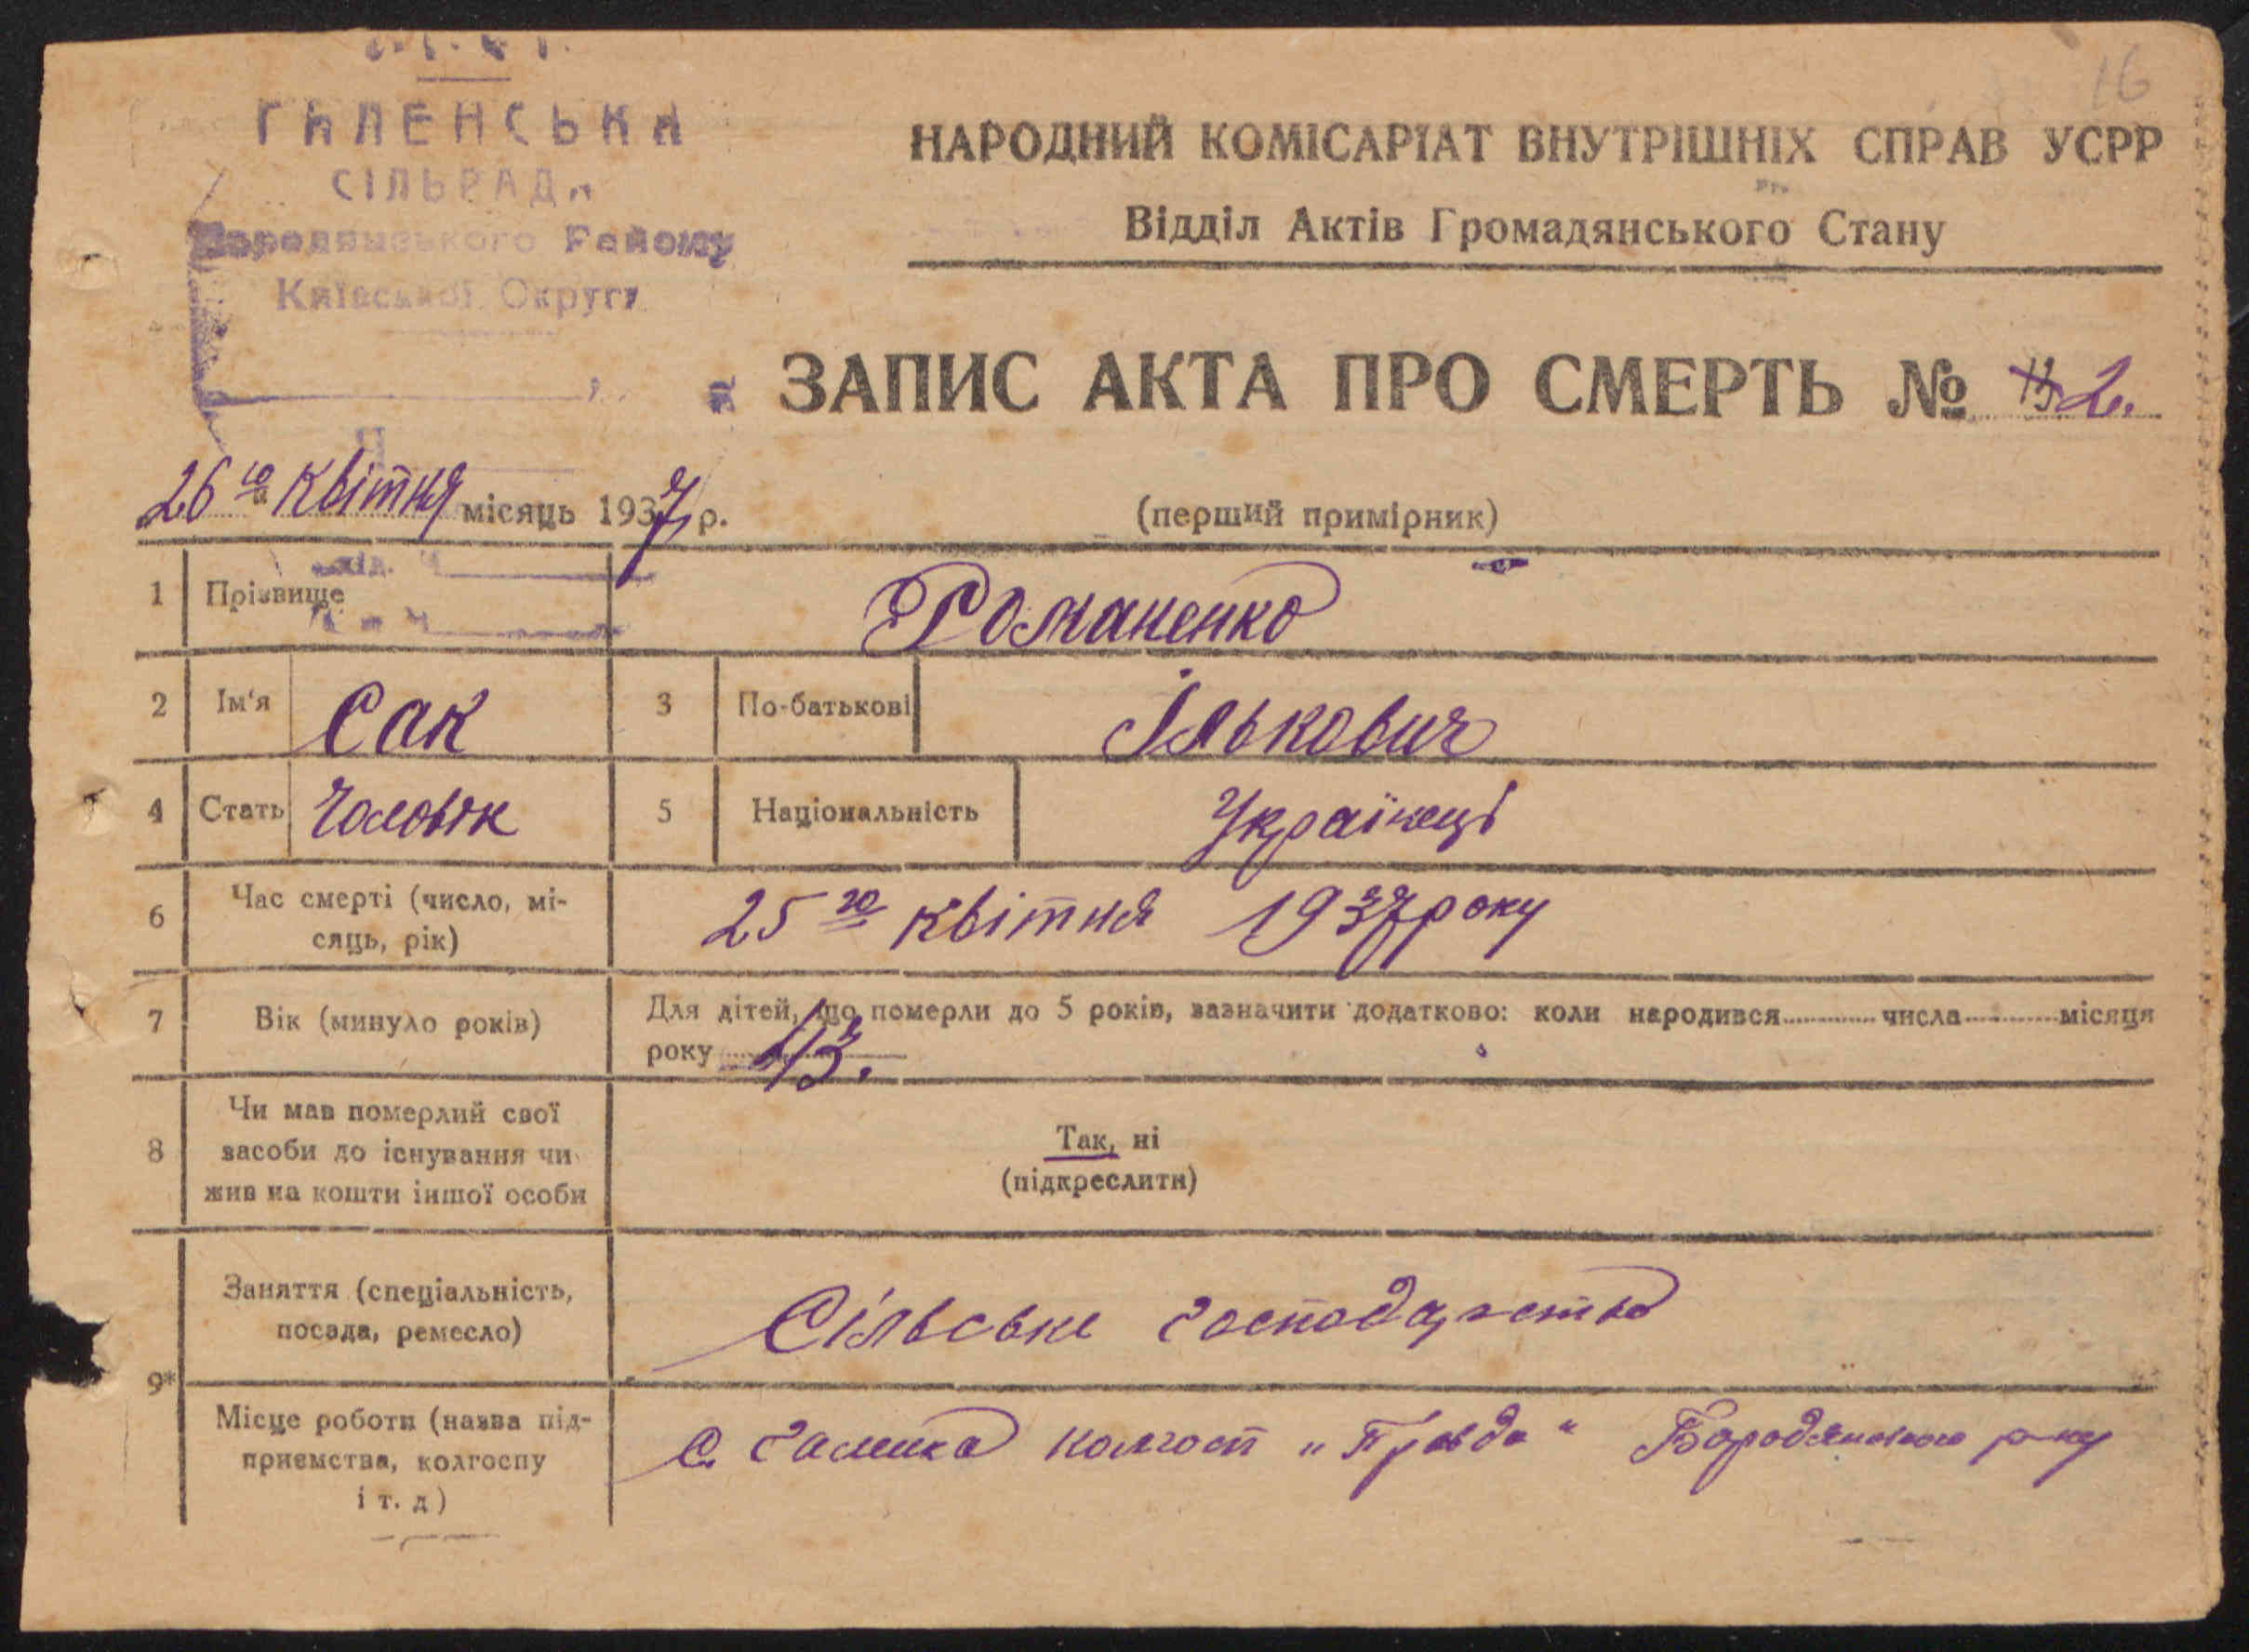 16
ГАЛЕНСЬКА
СІЛЬРАДА
Бородянського Району
Київської Округи
НАРОДНИЙ КОМІСАРІАТ ВНУТРІШНІХ СПРАВ УСРР
Відділ Актів Громадянського Стану
ЗАПИС АКТА ПРО СМЕРТЬ № 2.
26 го квітня місяць 1937 р.
(перший примірник)
1 Прізвище Романенко
2 Ім'я Сак 3 По-батькові Ількович
4 Стать Чоловік 5 Національність Українець
6 Час смерті (число, мі-
сяць, рік) 25 го квітня 1937 року
7 Вік (минуло років) Для дітей, що померли до 5 років, зазначити додатково: коли народився числа місяця
року 43.
8 Чи мав померлий свої
засоби до існування чи
жив на кошти іншої особи
Так, ні
(підкреслити)
9* Заняття (спеціальність,
посада, ремесло) Сільське господарство
Місце роботи (назва під-
приємства, колгоспу
і т. д)
С. Галенка колгосп „Правда“ Бородянського р-ну